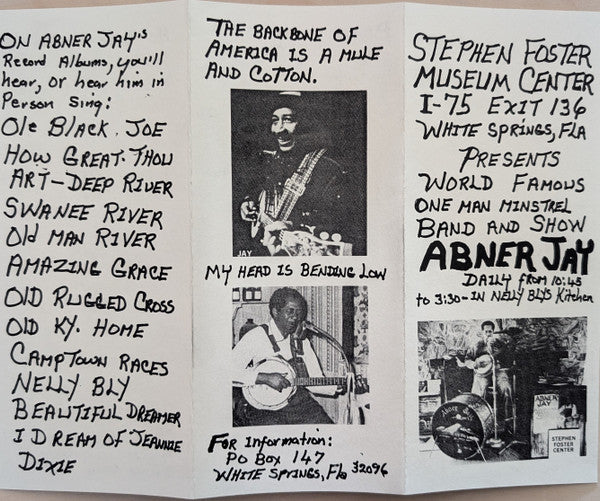 ON ABNER JAY's
Record Albums, you'll
hear, or hear him in
Person Sing:
Ole Black. JOE
HOW GREAT. THOU
ART-DEEP RIVER
SWANEE RIVER
Old MAN RIVER
AMAZING GRACE
OLD RUGGED CROSS
OLD KY. HOME
CAMPTOWN RACES
NELLY BLY
BEAUTIFUL DREAMER
I DREAM OF JEANNIE
DIXIE
THE BACKBONE OF
AMERICA IS A MULE
AND COTTON.
JAY
MY HEAD IS BENDING LOW
FOR Information:
PO BOX 147
WHITE SPRINGS, Fla 32096
STEPHEN FOSTER
MUSEUM CENTER
I-75 EXIT 136
WHITE SPRINGS, FLA
PRESENTS
WORLD FAMOUS
ONE MAN MINSTREL
BAND AND SHOW
ABNER JAY
DAILY from 10:45
to 3:30-IN NELLY BLYS Kitchen
ABNER JAY
ABNER
JAY
STEPHEN
FOSTER
CENTER